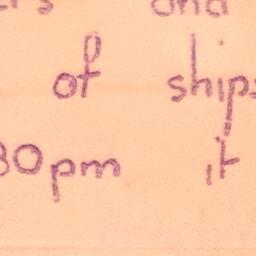 and
of ships
30pm it